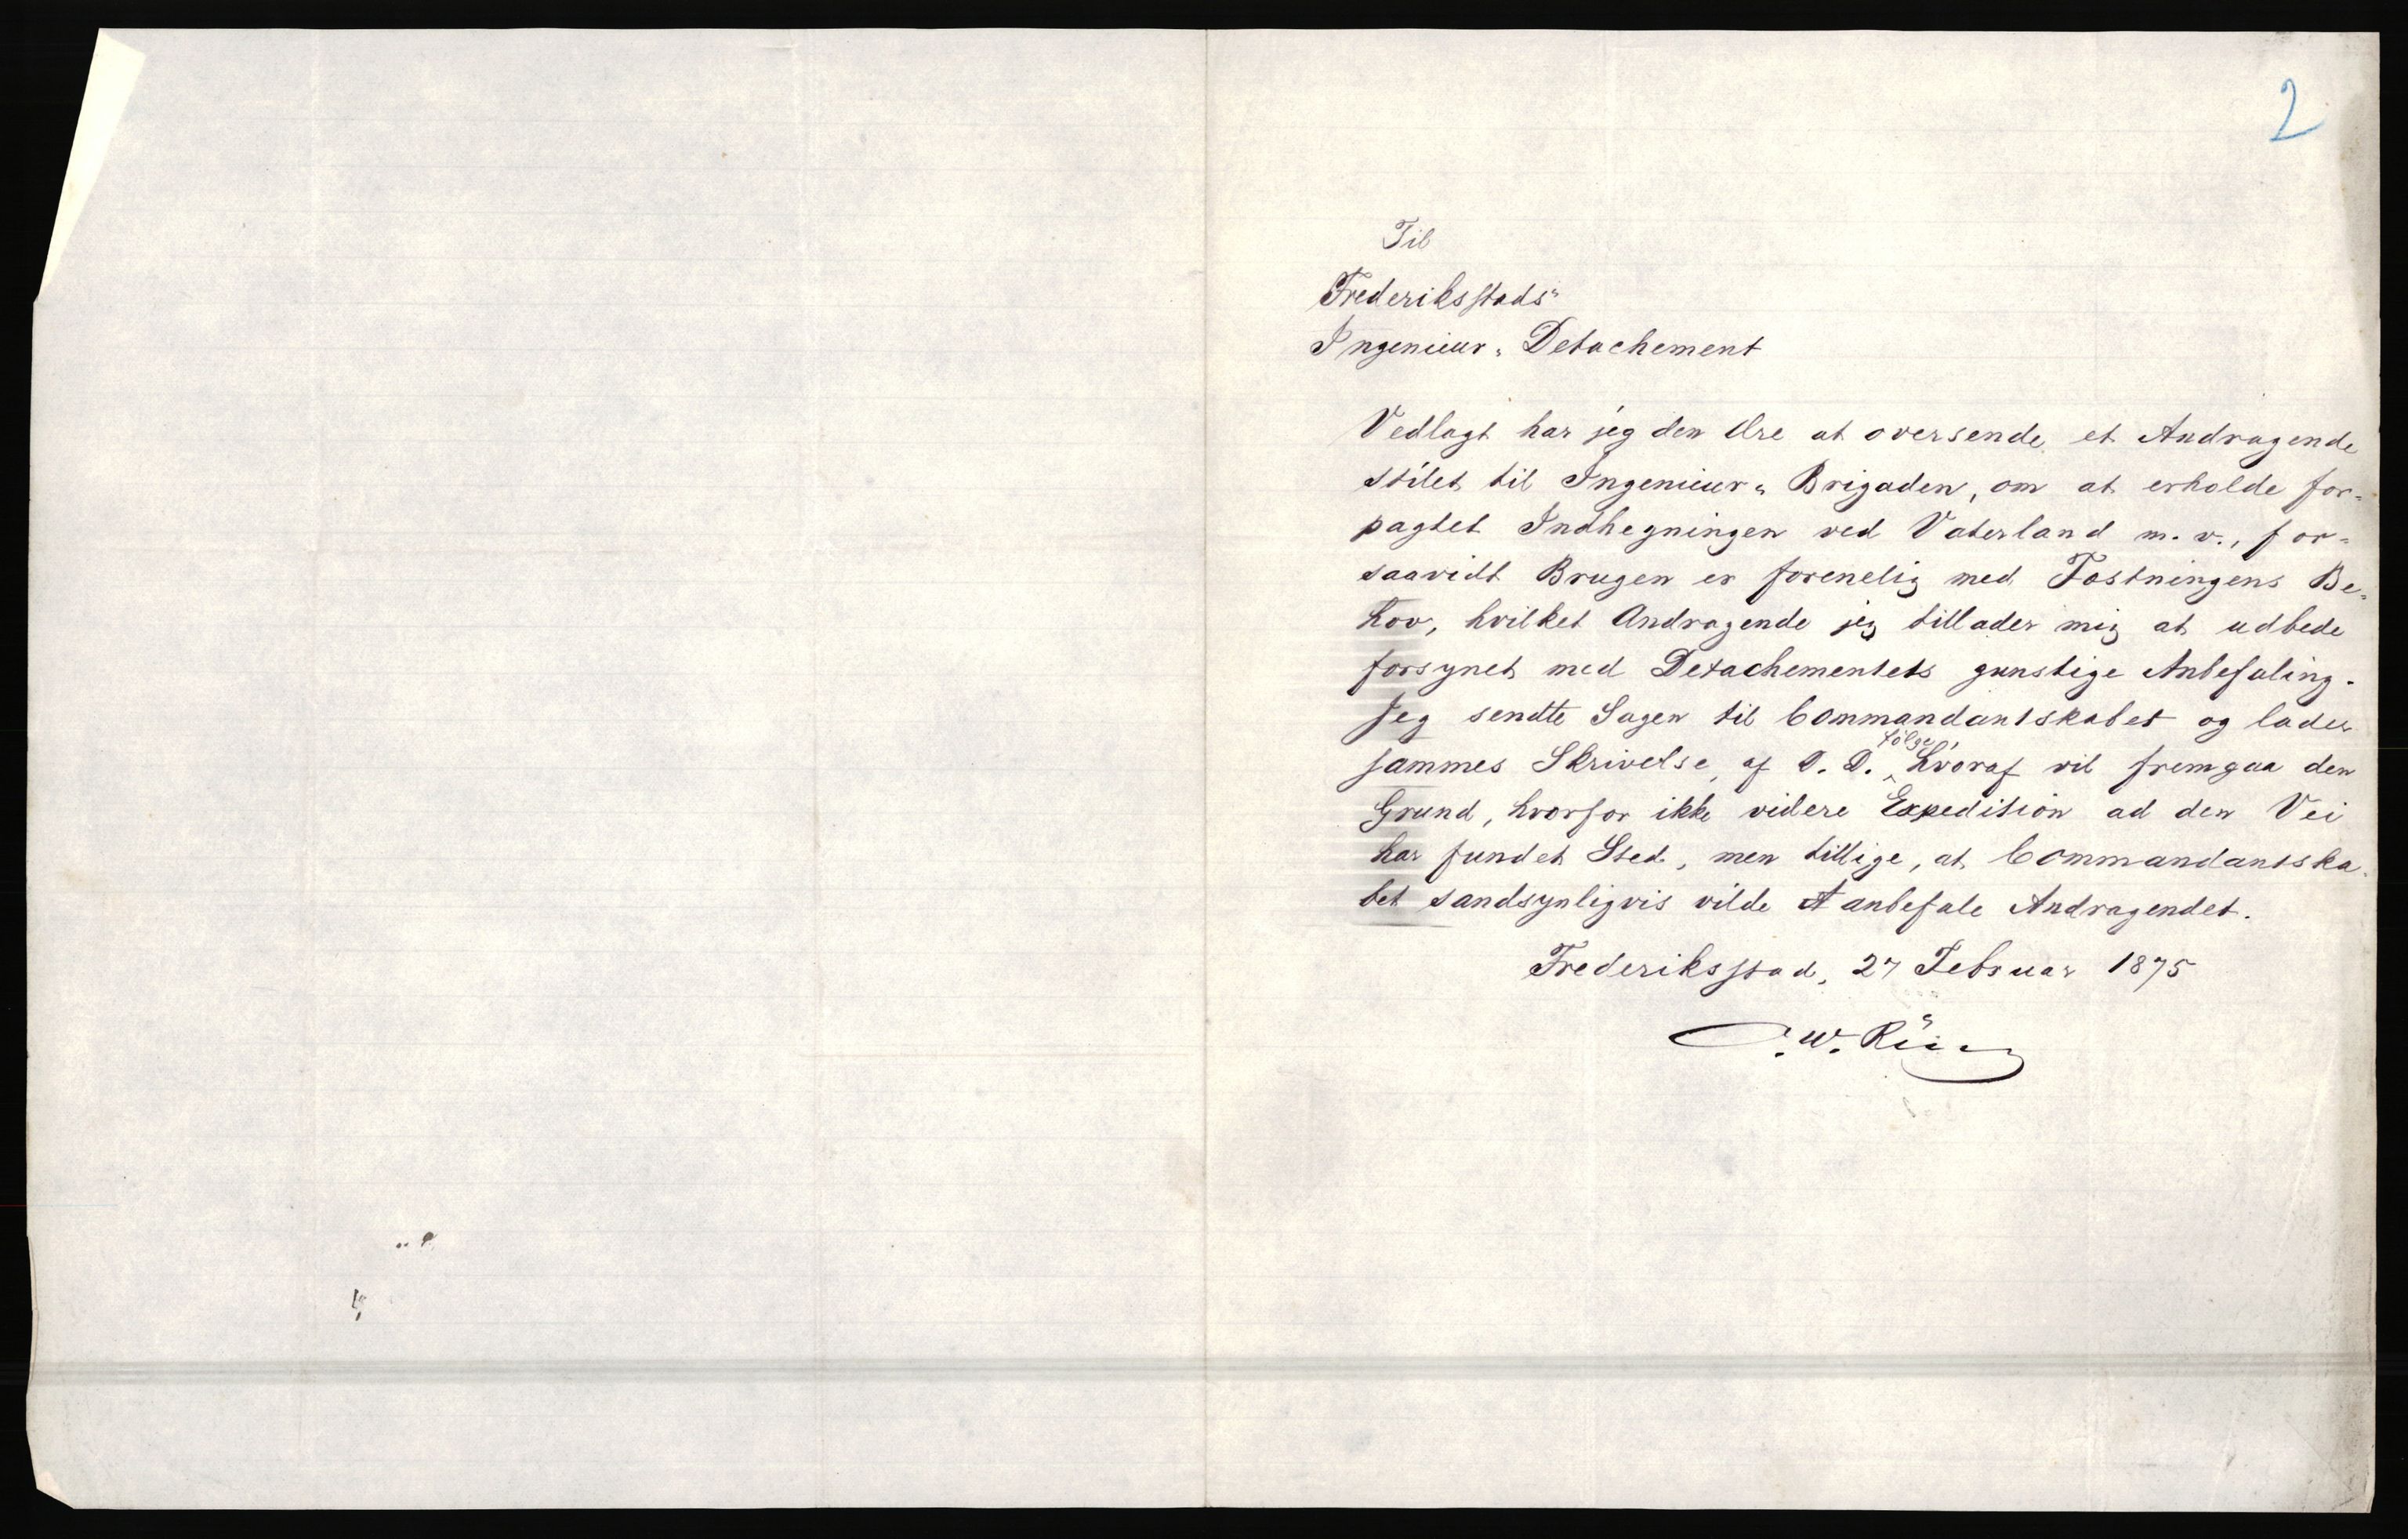 2
Til
Frederiksstads"
Ingenieur" Detachement
Vedlagt har jeg den Ære at oversende et Andragende
stilet til Ingenieur" Brigaden, om at erholde for-
pagtet Indhegningen ved Vaterland m. v., for-
saavidt Brugen er forenelig med Fæstningens Be-
hov, hvilket Andragende jeg tillader mig at udbede
forsynet med Detachementets gunstige Anbefaling.
Jeg sendte Sagen til Commandantskabet og lader
sammes Skrivelse, af D. D. følge, hvoraf vil fremgaa den
Grund, hvorfor ikke videre Expedition ad den Vei
har fundet Sted, men tillige, at Commandantska-
bet sandsynligvis vilde anbefale Andragendet.
Frederiksstad, 27 Februar 1875
W.